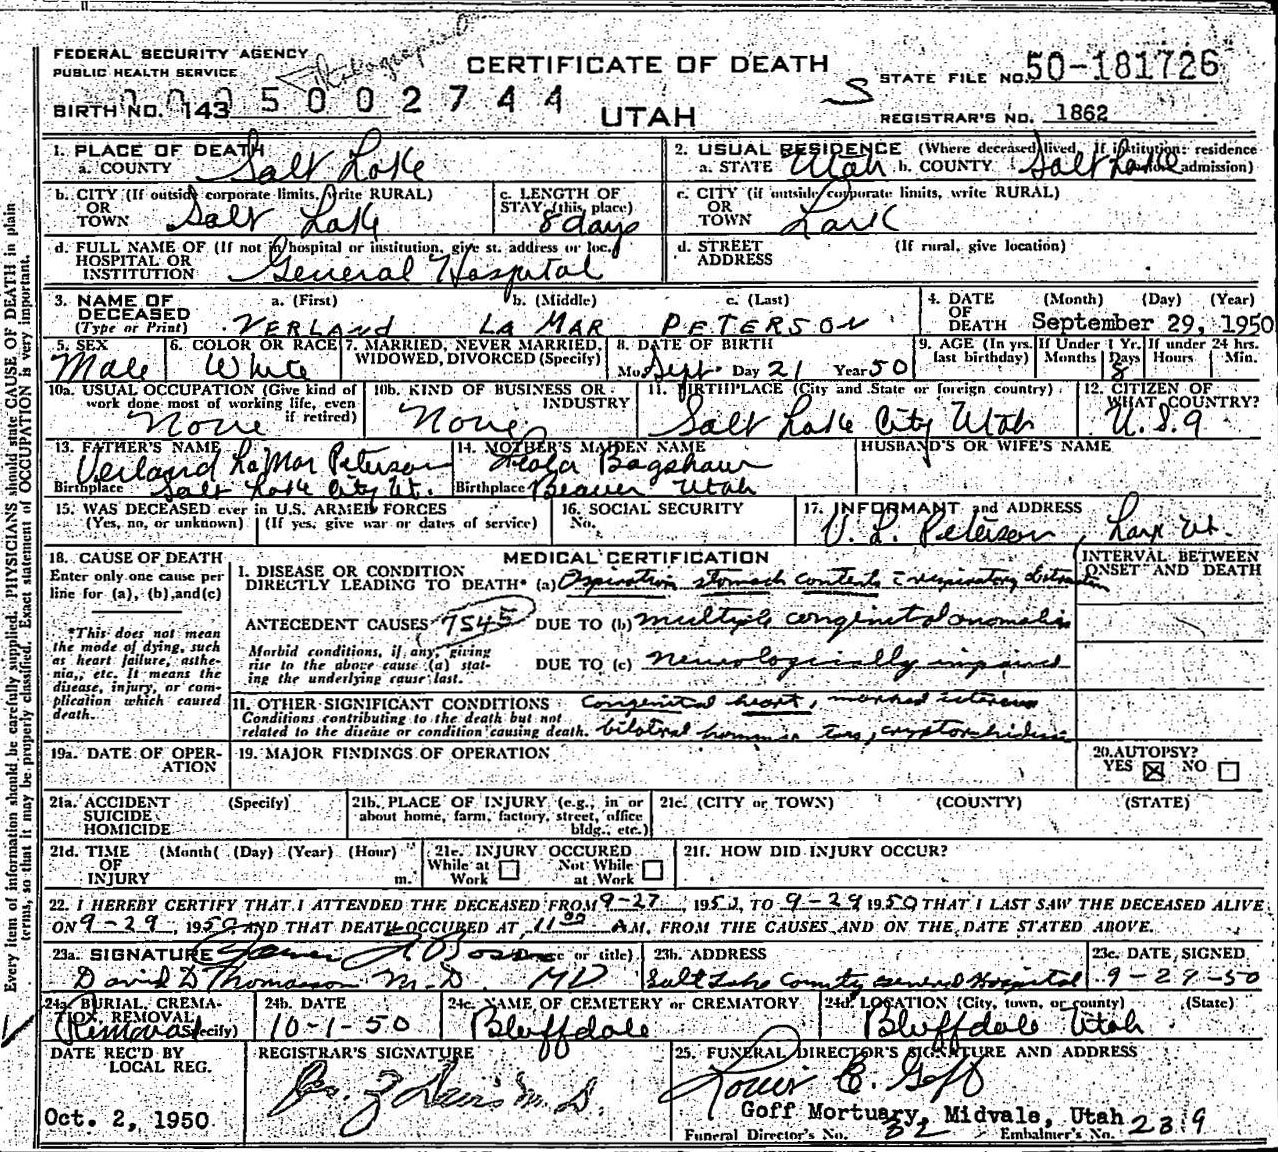 FEDERAL SECURITY AGENCY
PUBLIC HEALTH SERVICE
BIRTH NO. 143 5 0 0 2 7 4 4
CERTIFICATE OF DEATH
UTAH
S
STATE FILE NO. 50-181726
REGISTRAR'S NO. 1862
1. PLACE OF DEATH
a. COUNTY Salt Lake
2. USUAL RESIDENCE (Where deceased lived. If institution: residence
a. STATE Utah b. COUNTY Salt Lake admission)
b. CITY (If outside corporate limits, write RURAL)
OR
TOWN Salt Lake
c. LENGTH OF
STAY (this place)
8 days
c. CITY (if outside corporate limits, write RURAL)
OR
TOWN Lark
d. FULL NAME OF (If not in hospital or institution, give st. address or loc.)
HOSPITAL OR
INSTITUTION General Hospital
d. STREET (If rural, give location)
ADDRESS
3. NAME OF DECEASED
(Type or Print)
a. (First) b. (Middle) c. (Last)
VERLAND LA MAR PETERSON
4. DATE OF DEATH (Month) (Day) (Year)
September 29, 1950
5. SEX
Male
6. COLOR OR RACE
White
7. MARRIED, NEVER MARRIED,
WIDOWED, DIVORCED (Specify)
8. DATE OF BIRTH
Mo. Sept. Day 21 Year 50
9. AGE (In yrs. last birthday)
If Under 1 Yr. Months Days
8
If under 24 hrs. Hours Min.
10a. USUAL OCCUPATION (Give kind of
work done most of working life, even
if retired)
None
10b. KIND OF BUSINESS OR
INDUSTRY
None
11. BIRTHPLACE (City and State or foreign country)
Salt Lake City Utah
12. CITIZEN OF
WHAT COUNTRY?
U.S.A
13. FATHER'S NAME
Verland LaMar Peterson
Birthplace Salt Lake City Ut.
14. MOTHER'S MAIDEN NAME
Bagshaw
Birthplace Beaver Utah
HUSBAND'S OR WIFE'S NAME
15. WAS DECEASED ever in U.S. ARMED FORCES
(Yes, no, or unknown) (If yes, give war or dates of service)
16. SOCIAL SECURITY
No.
17. INFORMANT and ADDRESS
V. L. Peterson, Lark Ut.
18. CAUSE OF DEATH
Enter only one cause per
line for (a), (b), and (c)
*This does not mean
the mode of dying, such
as heart failure, asthe-
nia, etc. It means the
disease, injury, or com-
plication which caused
death.
MEDICAL CERTIFICATION
1. DISEASE OR CONDITION
DIRECTLY LEADING TO DEATH* (a) Aspiration stomach contents c respiratory obstruction
ANTECEDENT CAUSES 7545 DUE TO (b) multiple congenital anomalies
Morbid conditions, if any, giving
rise to the above cause (a) stat-
ing the underlying cause last.
DUE TO (c) neurologically impaired
11. OTHER SIGNIFICANT CONDITIONS
Conditions contributing to the death but not
related to the disease or condition causing death.
Congenital heart, marked icterus
bilateral hammer toes, cryptorchidism
INTERVAL BETWEEN
ONSET AND DEATH
19a. DATE OF OPER-
ATION
19. MAJOR FINDINGS OF OPERATION
20. AUTOPSY?
YES ☒ NO ☐
21a. ACCIDENT (Specify)
SUICIDE
HOMICIDE
21b. PLACE OF INJURY (e.g., in or
about home, farm, factory, street, office
bldg., etc.)
21c. (CITY or TOWN) (COUNTY) (STATE)
21d. TIME (Month( (Day) (Year) (Hour)
OF
INJURY m.
21e. INJURY OCCURED
While at Work ☐ Not While at Work ☐
21f. HOW DID INJURY OCCUR?
22. I HEREBY CERTIFY THAT I ATTENDED THE DECEASED FROM 9-27, 1950, TO 9-29 1950 THAT I LAST SAW THE DECEASED ALIVE
ON 9-29, 1950 AND THAT DEATH OCCURED AT 11:00 AM. FROM THE CAUSES AND ON THE DATE STATED ABOVE.
23a. SIGNATURE (Degree or title)
David D Thomasson M.D. MD
23b. ADDRESS
Salt Lake County General Hospital
23c. DATE SIGNED
9-29-50
24a. BURIAL, CREMA-
TION, REMOVAL (Specify)
Removal
24b. DATE
10-1-50
24c. NAME OF CEMETERY or CREMATORY
Bluffdale
24d. LOCATION (City, town, or county) (State)
Bluffdale Utah
DATE REC'D BY
LOCAL REG.
Oct. 2, 1950
REGISTRAR'S SIGNATURE
M.D.
25. FUNERAL DIRECTOR'S SIGNATURE AND ADDRESS
Louis E. Goff
Goff Mortuary, Midvale, Utah
Funeral Director's No. 32 Embalmer's No. 239
Every item of information should be carefully supplied. PHYSICIANS should state CAUSE OF DEATH in plain
terms, so that it may be properly classified. Exact statement of OCCUPATION is very important.